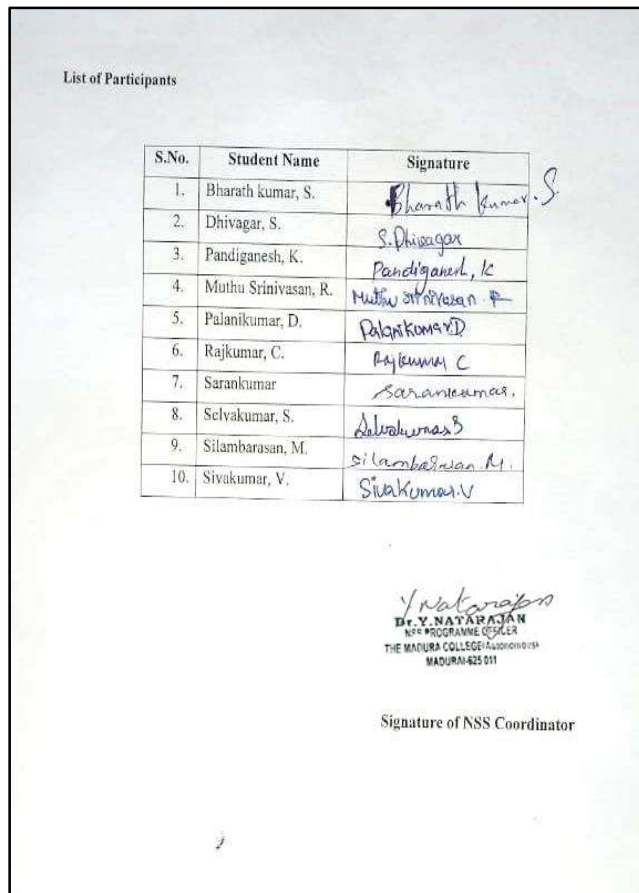 List of Participants
S.No. Student Name Signature
1. Bharath kumar, S. Bharath kumar. S.
2. Dhivagar, S. S. Dhivagar
3. Pandiganesh, K. Pandiganesh, K
4. Muthu Srinivasan, R. Muthu srinivasan. R
5. Palanikumar, D. Palanikumar.D.
6. Rajkumar, C. Rajkumar C
7. Sarankumar Sarankumar.
8. Selvakumar, S. Selvakumar.S
9. Silambarasan, M. Silambarasan. M.
10. Sivakumar, V. Sivakumar.V
Y Natarajan
Dr.Y.NATARAJAN
NSS PROGRAMME OFFICER
THE MADURA COLLEGE (Autonomous)
MADURAI-625 011
Signature of NSS Coordinator